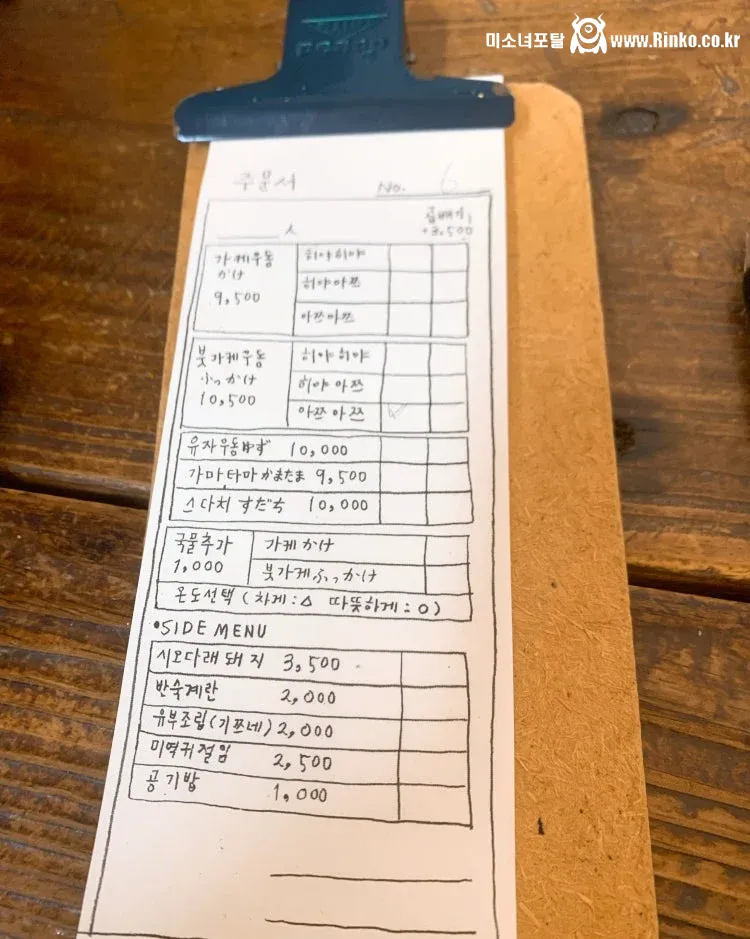 미소녀포탈 www.Rinko.co.kr
주문서 No. 6
人 곱배기
+3,500
가케우동
かけ
9,500
히야히야
히야아쯔
아쯔아쯔
붓가케우동
ぶっかけ
10,500
히야 히야
히야 아쯔
아쯔 아쯔
유자우동 ゆず 10,000
가마타마 かまたま 9,500
스다치 すだち 10,000
국물추가
1,000
가케 かけ
붓가케 ぶっかけ
온도선택 (차게:△ 따뜻하게:○)
•SIDE MENU
시오다래돼지 3,500
반숙계란 2,000
유부조림(기쯔네) 2,000
미역귀절임 2,500
공기밥 1,000